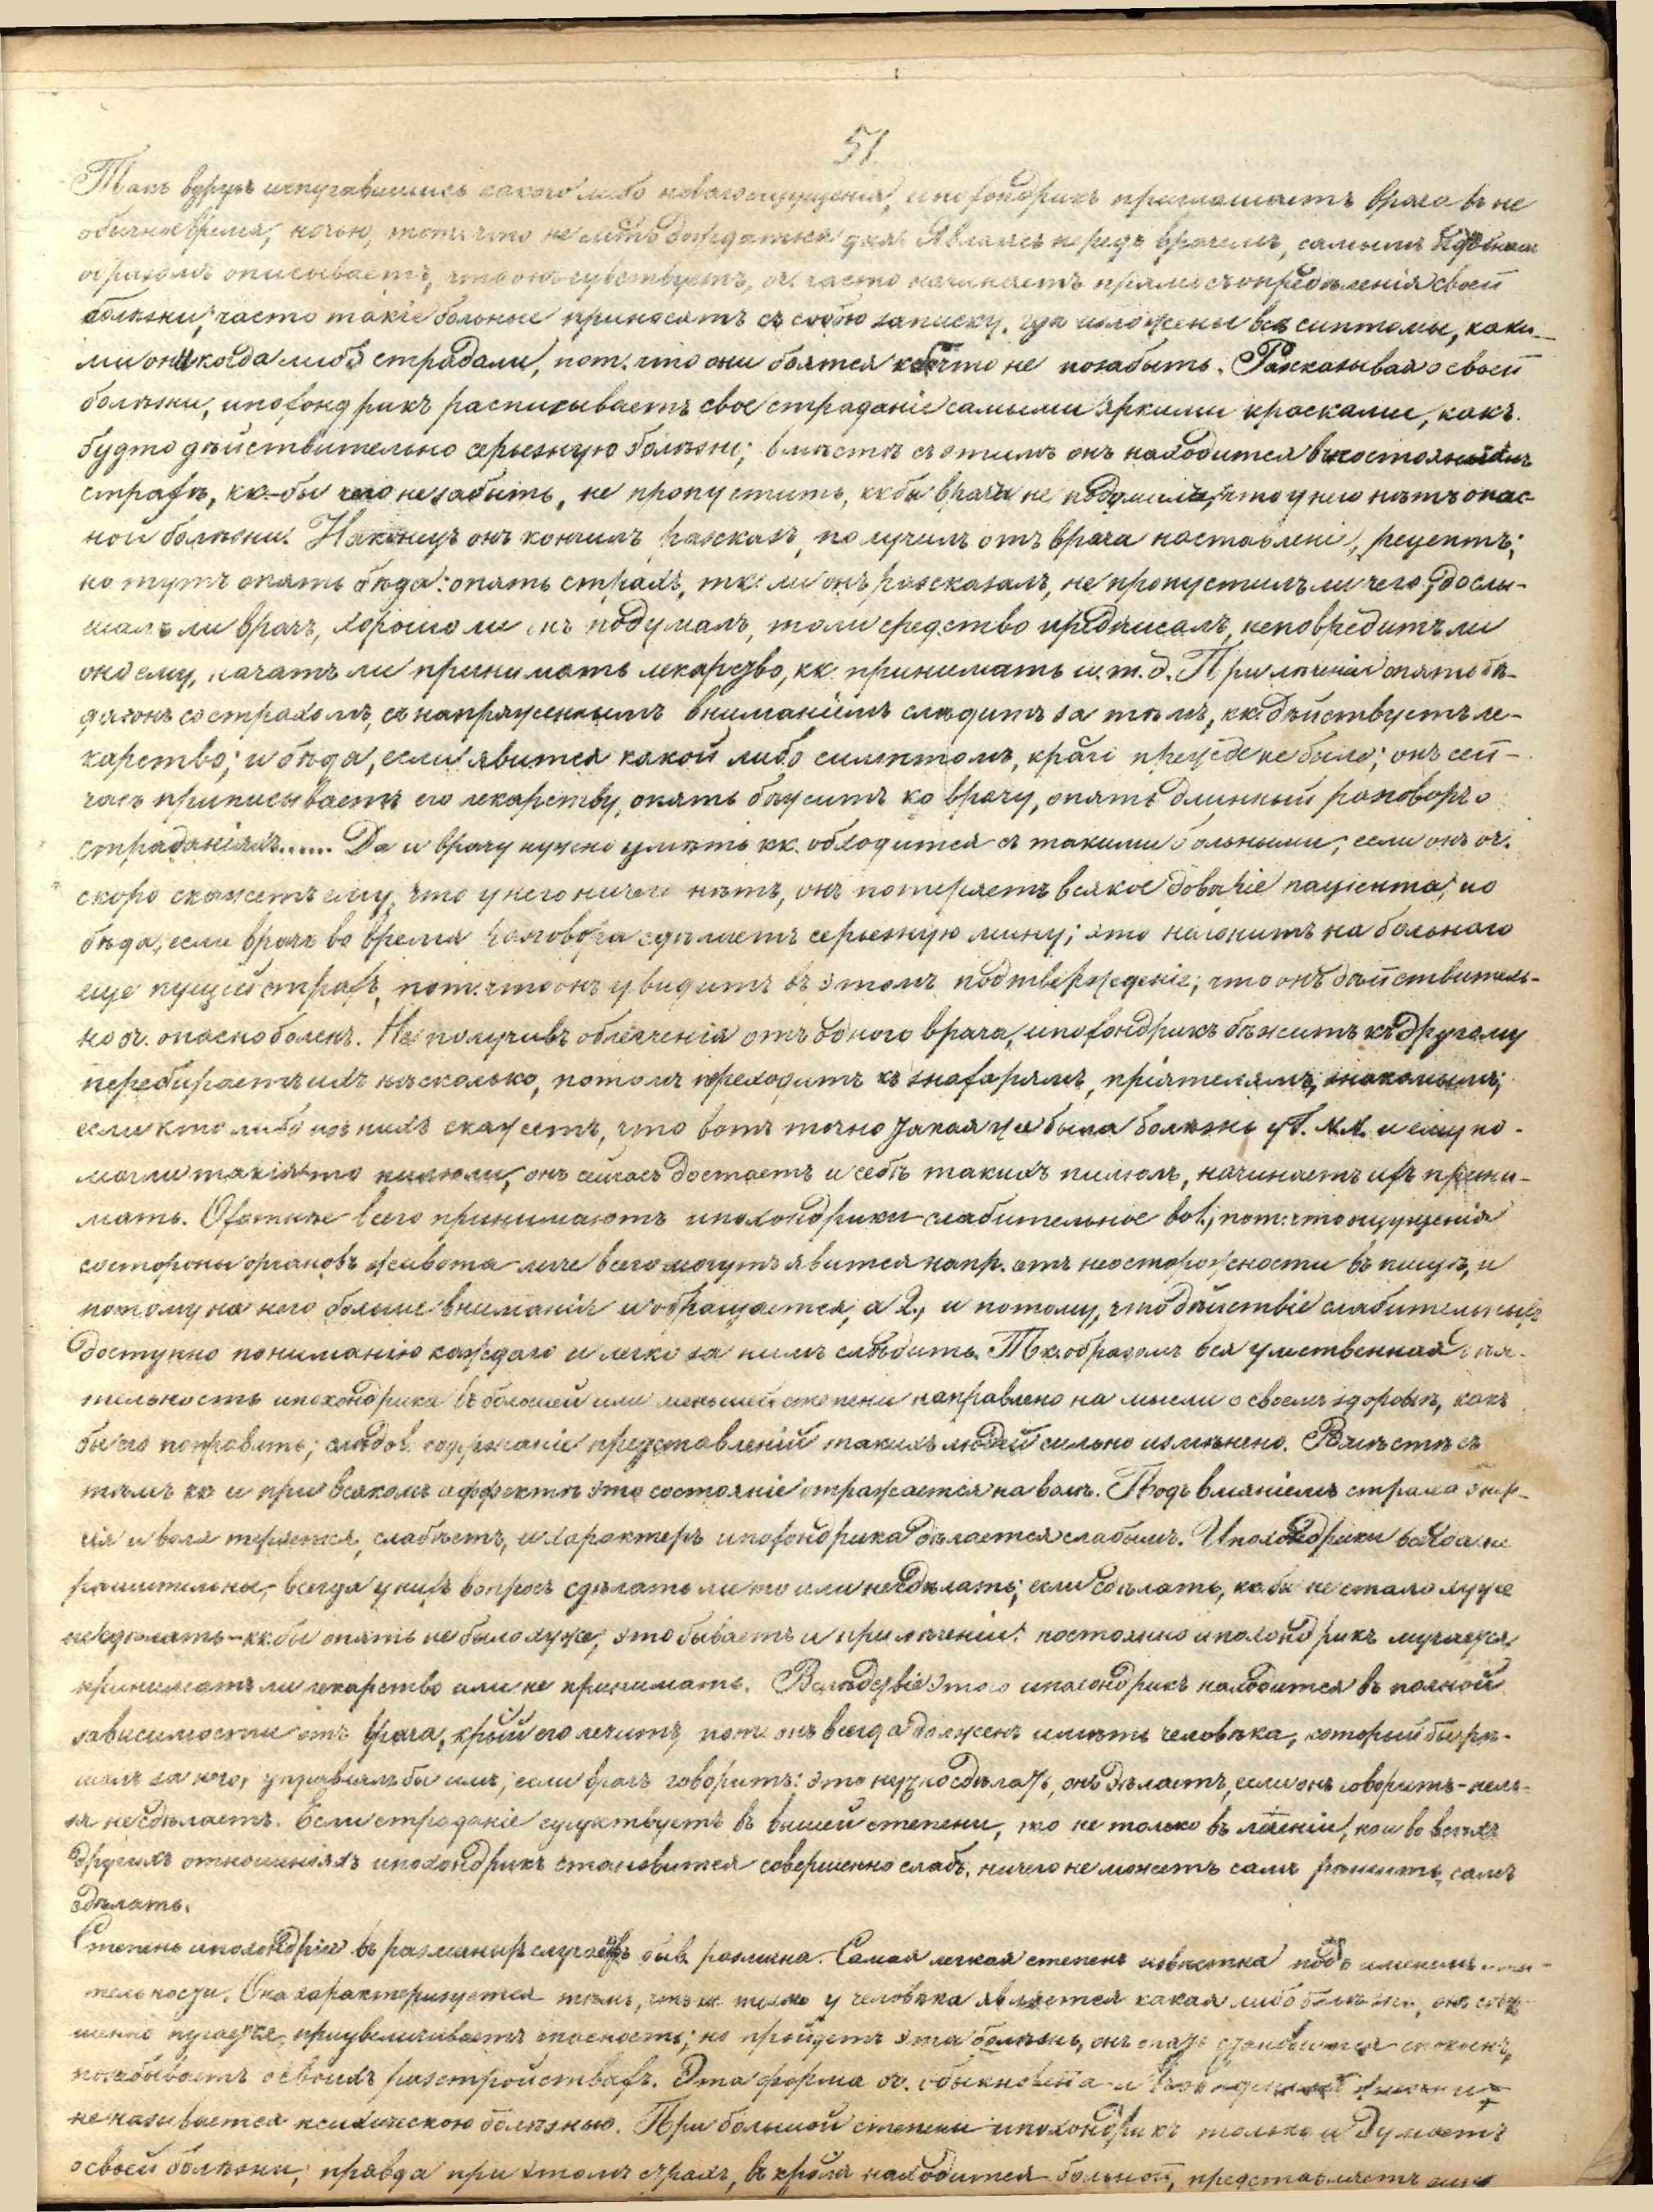 51.
Такъ вдругъ испугавшись какого либо новаго ощущенія, ипохондрикъ приглашаетъ врача въ не
обычное время, ночью, пот. что не можетъ дождаться дня. Являясь передъ врачемъ, самымъ подробнымъ
образомъ описываетъ, что онъ чувствуетъ, оч. часто начинаетъ прямо съ опредѣленія своей
болѣзни; часто такіе больные приносятъ съ собою записку, гдѣ изложены всѣ симптомы, каки-
ми они когда либо страдали, пот. что они боятся кк бы что не позабыть. Разсказывая о своей
болѣзни, ипохондрикъ расписываетъ свое страданіе самыми яркими красками, какъ
будто дѣйствительно серьезную болѣзнь; вмѣстѣ съ этимъ онъ находится въ постоянномъ
страхѣ, кк-бы чего не забыть, не пропустить, кк бы врачъ не подумалъ, что у него нѣтъ опас-
ной болѣзни. Наконецъ онъ кончилъ разсказъ, получилъ отъ врача наставленіе, рецептъ;
но тутъ опять бѣда: опять страхъ, тк. ли онъ разсказалъ, не пропустилъ ли чего, дослы-
шалъ ли врачъ, хорошо ли онъ подумалъ, то ли средство предписалъ, не повредитъ ли
оно ему, начать ли принимать лекарство, кк. принимать и. т. д. При леченіи опять бѣ-
да: онъ со страхомъ, съ напряженнымъ вниманіемъ слѣдитъ за тѣмъ, кк. дѣйствуетъ ле-
карство; и бѣда, если явится какой либо симптомъ, краго прежде не было; онъ сей-
часъ приписываетъ его лекарству, опять бѣжитъ ко врачу, опять длинный разговоръ о
страданіяхъ...... Да и врачу нужно умѣть кк. обходится съ такими больными; если онъ оч.
скоро скажетъ ему, что у него ничего нѣтъ, онъ потеряетъ всякое довѣріе паціента; но
бѣда, если врачъ во время разговора сдѣлаетъ серьезную мину; это нагонитъ на больнаго
еще пущій страхъ, пот. что онъ увидитъ въ этомъ подтвержденіе, что онъ дѣйствитель-
но оч. опасно боленъ. Не получивъ облегченія отъ одного врача, ипохондрикъ бѣжитъ къ другому
перебираетъ ихъ нѣсколько, потомъ переходитъ къ знахарямъ, пріятелямъ, знакомымъ;
если кто либо изъ нихъ скажетъ, что вотъ точно такая же была болѣзнь у N. N. и ему по-
могли такія-то пилюли, онъ сейчасъ достаетъ и себѣ такихъ пилюль, начинаетъ ихъ прини-
мать. Охотнѣе всего принимаютъ ипохондрики слабительное во 1, пот. что ощущенія
со стороны органовъ живота легче всего могутъ явится напр. отъ неосторожности въ пищѣ, и
потому на него больше вниманія и обращается, а 2, и потому, что дѣйствіе слабительныхъ
доступно пониманію каждаго и легко за нимъ слѣдить. Тк. образомъ вся умственная дѣя-
тельность ипохондрика въ большей или меньшей степени направлено на мысли о своемъ здоровьѣ, какъ
бы его поправить; слѣдов. содержаніе представленій такихъ людей сильно измѣнено. Вмѣстѣ съ
тѣмъ кк и при всякомъ аффектѣ это состояніе отражается на волѣ. Подъ вліяніемъ страха энер-
гія и воля теряется, слабѣетъ, и характеръ ипохондрика дѣлается слабымъ. Ипохондрики всегда не
рѣшительны, всегда у нихъ вопросъ сдѣлать ли то или не сдѣлать; если сдѣлать, кк бы не стало хуже
не сдѣлать - кк. бы опять не было хуже; это бываетъ и при леченіи: постоянно ипохондрикъ мучается,
принимать ли лекарство или не принимать. Вслѣдствіе этого ипохондрикъ находится въ полной
зависимости отъ врача, крый его лечитъ, пот. онъ всегда долженъ имѣть человѣка, который бы рѣ-
шалъ за него, управлялъ бы имъ; если врачъ говоритъ: это нужно сдѣлать, онъ дѣлаетъ, если онъ говоритъ - нель-
зя не сдѣлаетъ. Если страданіе существуетъ въ высшей степени, то не только въ леченіи, но и во всѣхъ
другихъ отношеніяхъ ипохондрикъ становится совершенно слабъ, ничего не можетъ самъ рѣшить, самъ
сдѣлать.
Степень ипохондріи въ различныхъ случаяхъ быв. различна. Самая легкая степень извѣстна подъ именемъ мни-
тельности. Она характеризуется тѣмъ, что кк. только у человѣка является какая либо болѣзнь, онъ
пугается, преувеличиваетъ опасность; но пройдетъ эта болѣзнь, онъ опять становится спокоенъ,
позабываетъ о своихъ разстройствахъ. Эта форма оч. обыкновенна и
не называется психическою болѣзнью. При большой степени ипохондрикъ только и думаетъ
о своей болѣзни; правда при этомъ страхъ, въ кромъ находится больной, представляетъ